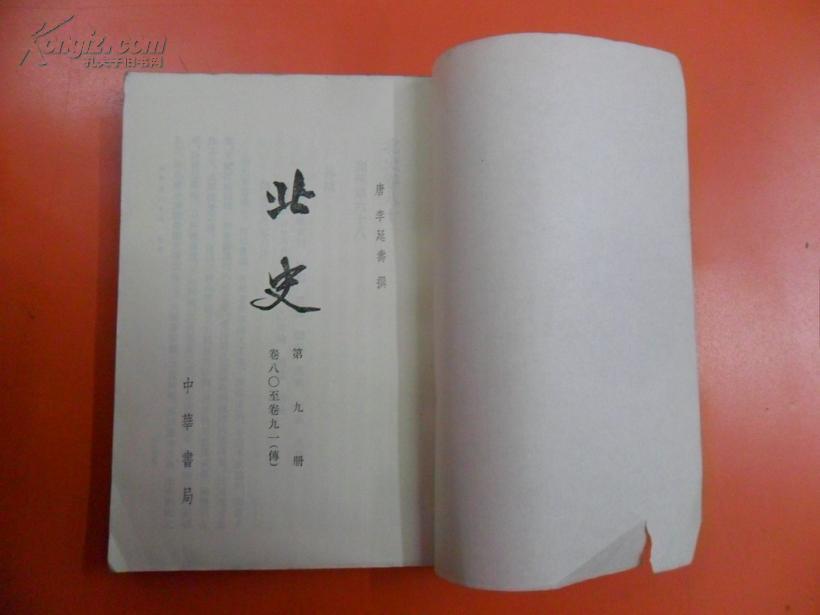 Kongfz.com
孔夫子旧书网
唐 李延壽 撰
北史
第九册
卷八〇至卷九一(傳)
中華書局